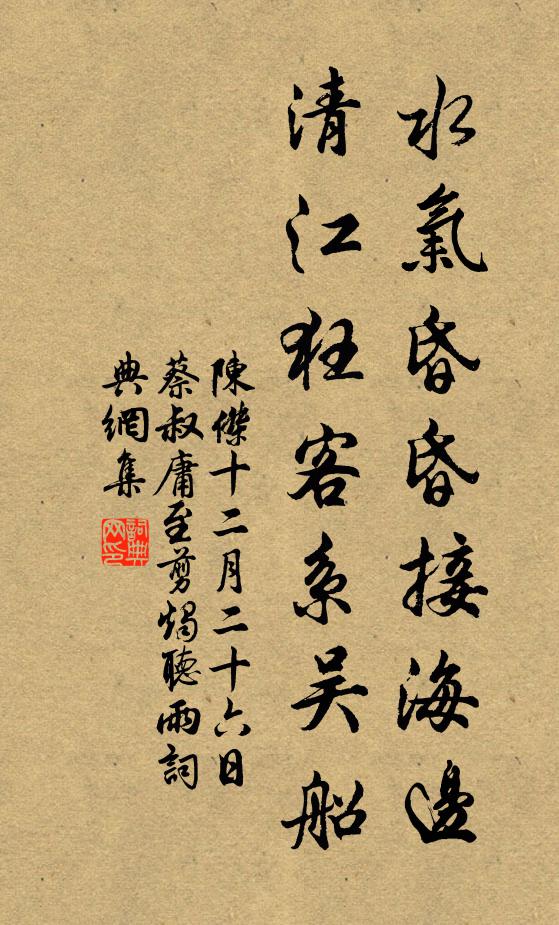 水氣昏昏接海邊
清江狂客系吴船
陳傑十二月二十六日
蔡叔庸至剪燭聽雨詞
典網集
詞典网印